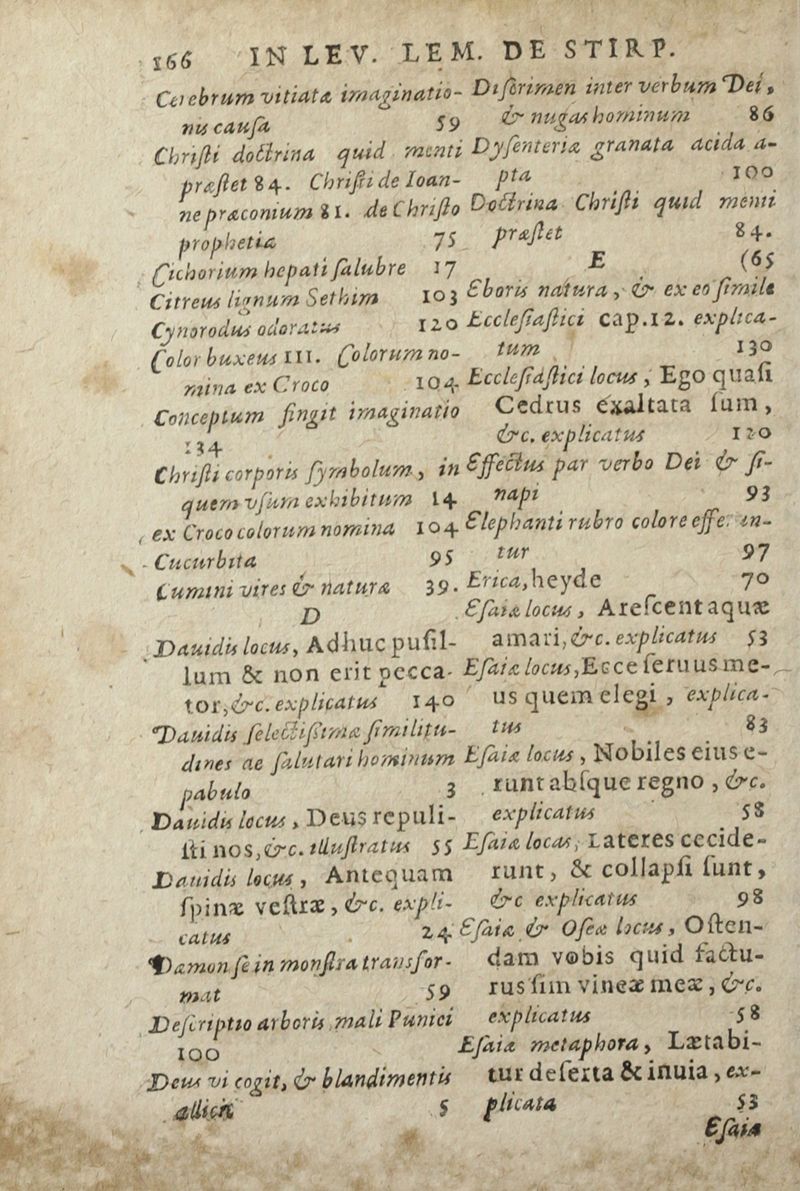 166 IN LEV. LEM. DE STIRP.
Cerebrum vitiatæ imaginatio-
nis cauſa 59
Chriſti doctrina quid menti
præſtet 84. Chriſti de Ioan-
ne præconium 81. de Chriſto
prophetia 75
Cichorium hepati ſalubre 17
Citreus lignum Sethim 103
Cynorodus odoratus 120
Color buxeus III. Colorum no-
mina ex Croco 104
Conceptum fingit imaginatio
134
Chriſti corporis ſymbolum, in
quem vſum exhibitum 14
ex Croco colorum nomina 104
Cucurbita 95
Cumini vires & natura 39.
D
Dauidis locus, Adhuc puſil-
lum & non erit pecca-
tor, &c. explicatus 140
Dauidis ſelectiſſimæ ſimilitu-
dines de ſalutari hominum
pabulo 3
Dauidis locus, Deus repuli-
ſti nos, &c. illuſtratus 55
Dauidis locus, Antequam
ſpinæ veſtræ, &c. expli-
catus 24
Dæmon ſe in monſtra transfor-
mat 59
Deſcriptio arboris mali Punici
100
Deus vi cogit, & blandimentis
allicit 5
Diſcrimen inter verbum Dei,
& nugas hominum 86
Dyſenteriæ granata acida a-
pta 100
Doctrina Chriſti quid menti
præſtet 84.
E (65
Eboris natura, & ex eo ſimile
Eccleſiaſtici cap.12. explica-
tum 130
Eccleſiaſtici locus, Ego quaſi
Cedrus exaltata ſum,
&c. explicatus 120
Effectus par verbo Dei & ſi-
napi 93
Elephanti rubro colore efferun-
tur 97
Erica, heyde 70
Eſaiæ locus, Areſcent aquæ
amari, &c. explicatus 53
Eſaiæ locus, Ecce ſeruus me-
us quem elegi, explica-
tus 83
Eſaiæ locus, Nobiles eius e-
runt abſque regno, &c.
explicatus 58
Eſaiæ locus, Lateres cecide-
runt, & collapſi ſunt,
&c explicatus 98
Eſaiæ & Oſeæ locus, Oſten-
dam vobis quid factu-
rus ſim vineæ meæ, &c.
explicatus 58
Eſaiæ metaphora, Lætabi-
tur deſerta & inuia, ex-
plicata 53
Eſaiæ